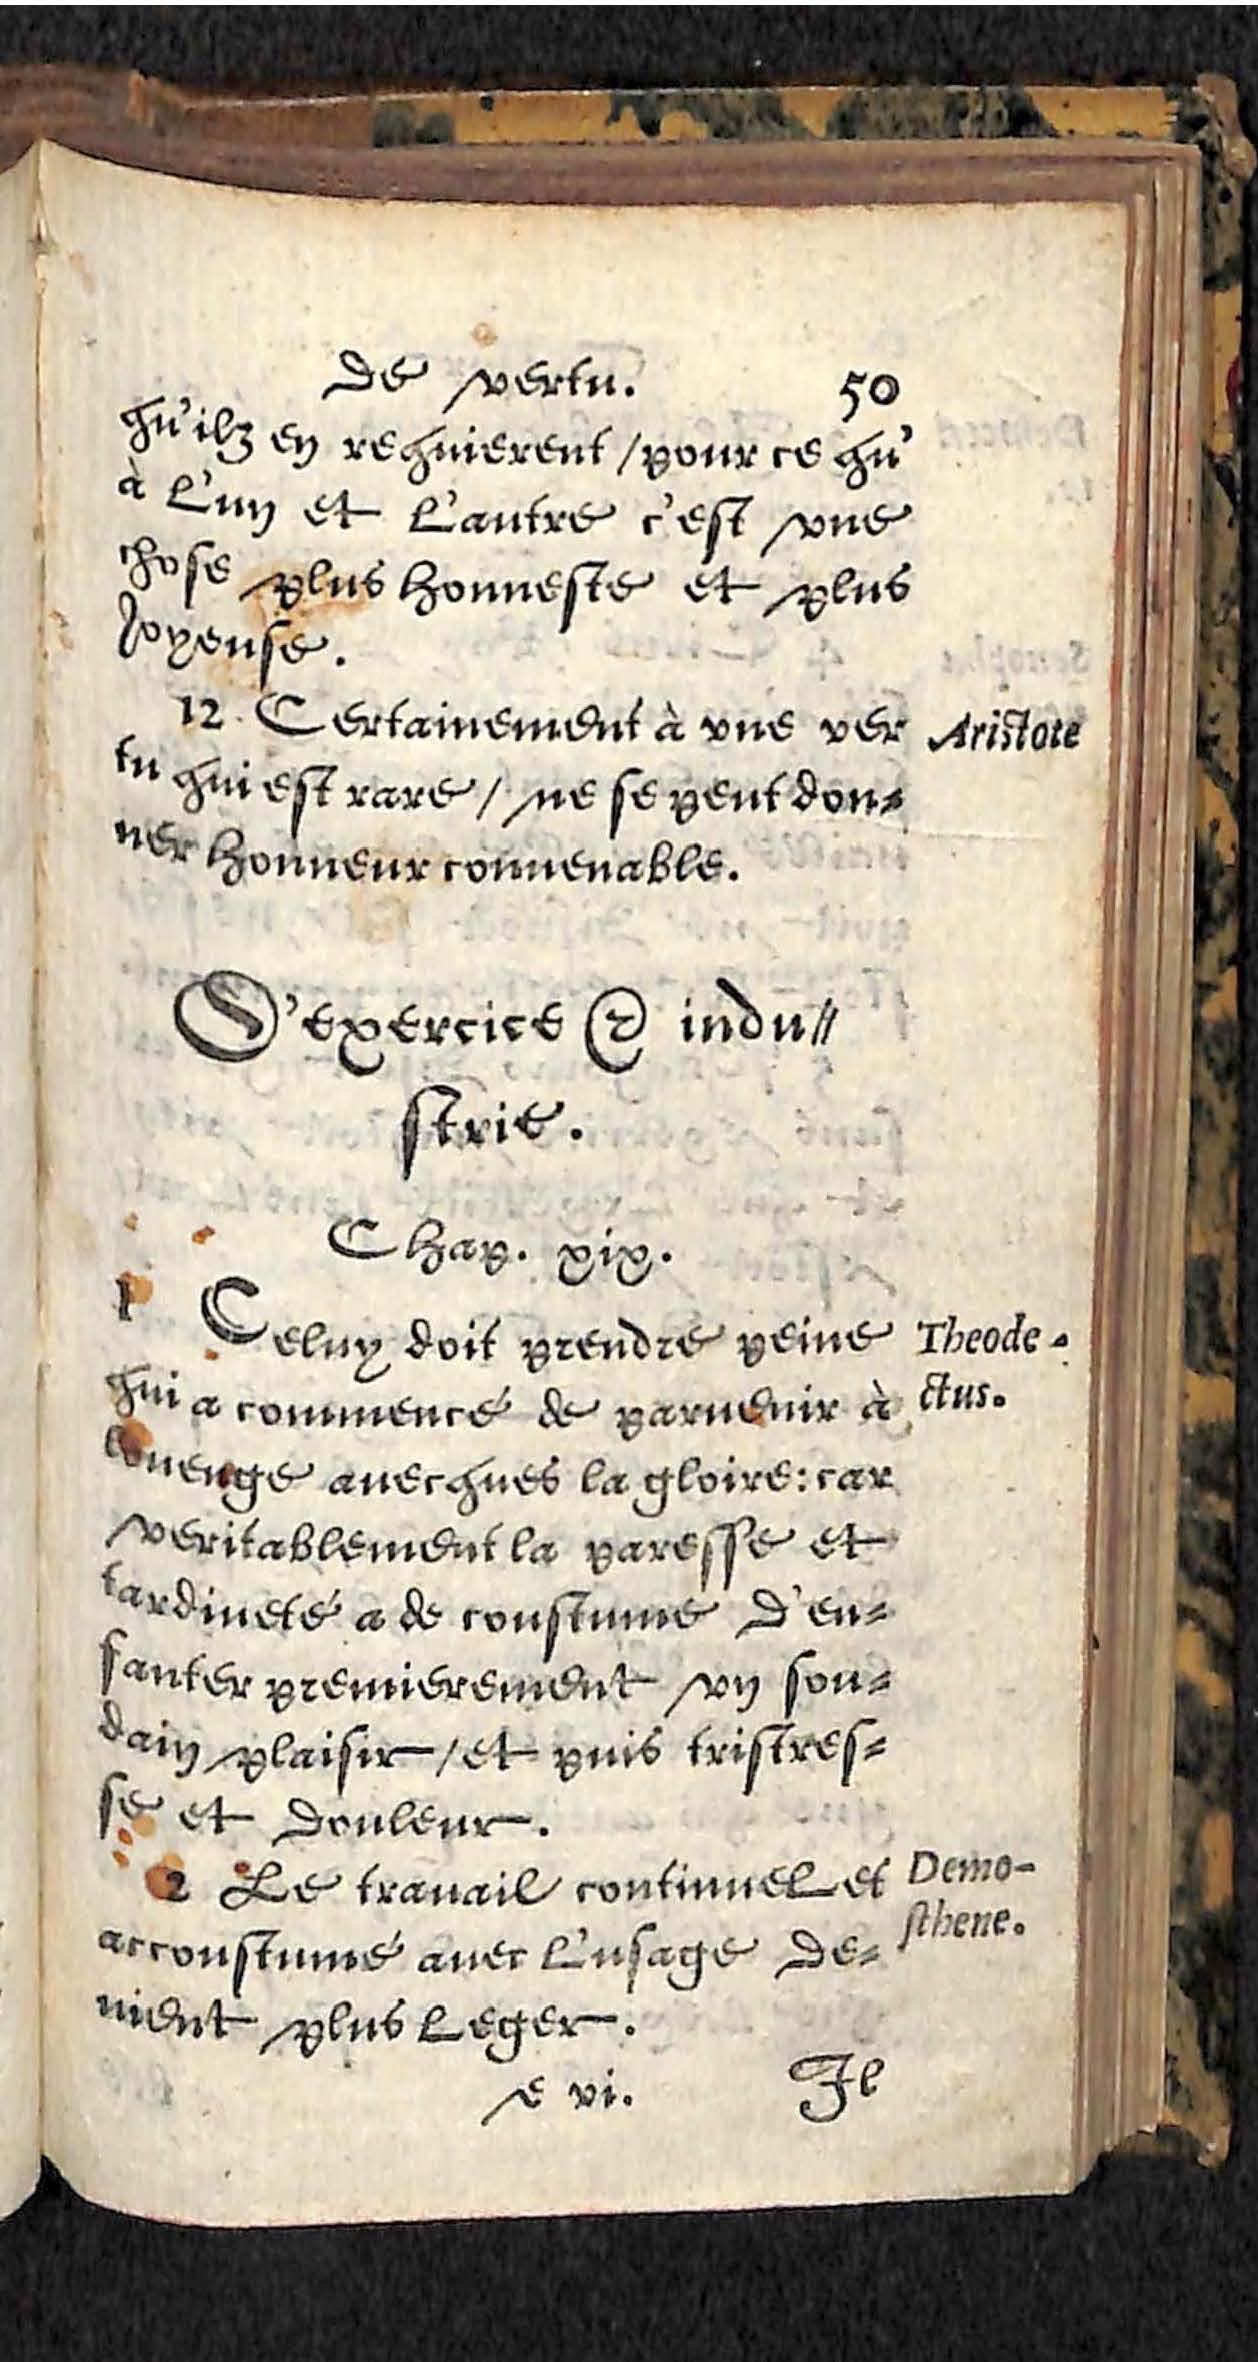 De vertu. 50
qu'ilz en requierent / pour ce qu'
à l'un et l'autre c'est vne
chose plus honneste et plus
Joyeuse.
12. Certainement à vne ver Aristote
tu qui est rare / ne se peut don-
ner honneur conuenable.
D'exercice & indu-
strie.
Chap. xix.
1 Celuy doit prendre peine Theode-
qui a commencé de paruenir à ctus.
louenge auecques la gloire: car
veritablement la paresse et
tardiueté a de coustume d'en-
fanter premierement vn sou-
dain plaisir / et puis tristres-
se et douleur.
2 Le trauail continuel et Demo-
accoustumé auec l'usage de- sthene.
uient plus leger.
e vi. Il